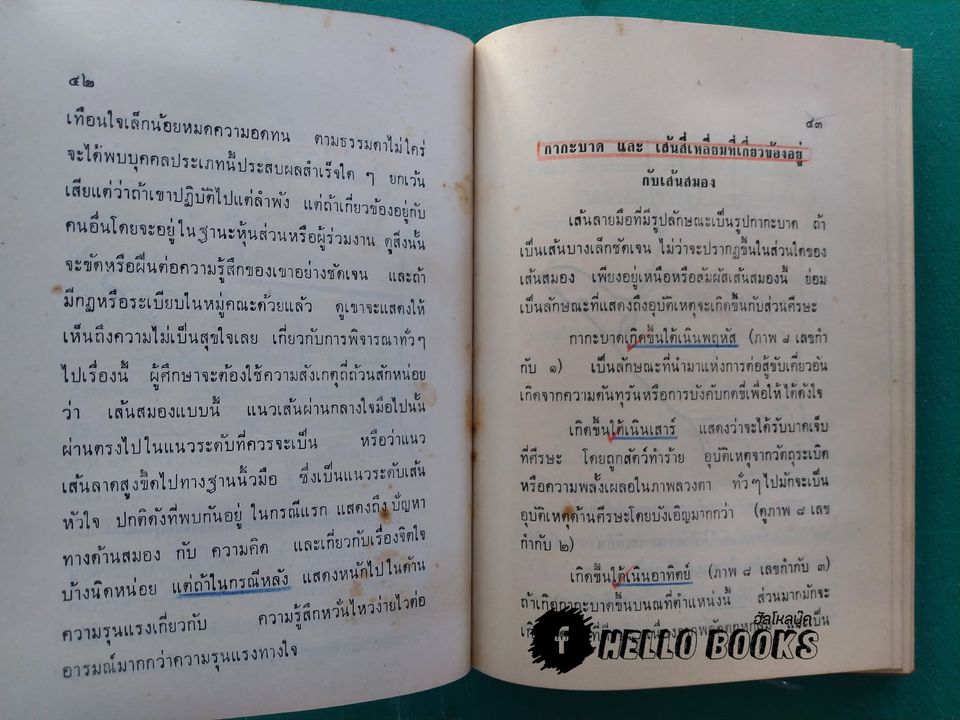 ๔๒
เทือนใจเล็กน้อยหมดความอดทน ตามธรรมดาไม่ใคร่
จะได้พบบุคคลประเภทนี้ประสบผลสำเร็จใด ๆ ยกเว้น
เสียแต่ว่าถ้าเขาปฏิบัติไปแต่ลำพัง แต่ถ้าเกี่ยวข้องอยู่กับ
คนอื่นโดยจะอยู่ในฐานะหุ้นส่วนหรือผู้ร่วมงาน ดูสิ่งนั้น
จะขัดหรือฝืนต่อความรู้สึกของเขาอย่างชัดเจน และถ้า
มีกฎหรือระเบียบในหมู่คณะด้วยแล้ว ดูเขาจะแสดงให้
เห็นถึงความไม่เป็นสุขใจเลย เกี่ยวกับการพิจารณาทั่วๆ
ไปเรื่องนี้ ผู้ศึกษาจะต้องใช้ความสังเกตุถี่ถ้วนสักหน่อย
ว่า เส้นสมองแบบนี้ แนวเส้นผ่านกลางใจมือไปนั้น
ผ่านตรงไปในแนวระดับที่ควรจะเป็น หรือว่าแนว
เส้นลาดสูงขึ้นไปทางฐานนิ้วมือ ซึ่งเป็นแนวระดับเส้น
หัวใจ ปกติดังที่พบกันอยู่ ในกรณีแรก แสดงถึง ปัญหา
ทางด้านสมอง กับ ความคิด และเกี่ยวกับเรื่องจิตใจ
บ้างนิดหน่อย แต่ถ้าในกรณีหลัง แสดงหนักไปในด้าน
ความรุนแรงเกี่ยวกับ ความรู้สึกหวั่นไหวง่ายไวต่อ
อารมณ์มากกว่าความรุนแรงทางใจ
๔๓
กากะบาด และ เส้นสี่เหลี่ยมที่เกี่ยวข้องอยู่
กับเส้นสมอง
เส้นลายมือที่มีรูปลักษณะเป็นรูปกากะบาด ถ้า
เป็นเส้นบางเล็กชัดเจน ไม่ว่าจะปรากฏขึ้นในส่วนใดของ
เส้นสมอง เพียงอยู่เหนือหรือสัมผัสเส้นสมองนี้ ย่อม
เป็นลักษณะที่แสดงถึงอุบัติเหตุจะเกิดขึ้นกับส่วนศีรษะ
กากะบาดเกิดขึ้นใต้เนินพฤหัส (ภาพ ๘ เลขกำ
กับ ๑) เป็นลักษณะที่นำมาแห่งการต่อสู้ขับเคี่ยวอัน
เกิดจากความดันทุรันหรือการบังคับกดขี่เพื่อให้ได้ดังใจ
เกิดขึ้นใต้เนินเสาร์ แสดงว่าจะได้รับบาดเจ็บ
ที่ศีรษะ โดยถูกสัตว์ทำร้าย อุบัติเหตุจากวัตถุระเบิด
หรือความพลั้งเผลอในภาพลวงตา ทั่วๆไปมักจะเป็น
อุบัติเหตุด้านศีรษะโดยบังเอิญมากกว่า (ดูภาพ ๘ เลข
กำกับ ๒)
เกิดขึ้นใต้เนินอาทิตย์ (ภาพ ๘ เลขกำกับ ๓)
ถ้าเกิดกากะบาดขึ้นบนณที่ตำแหน่งนี้ ส่วนมากมักจะ
ฮัลโหลบุ๊ค
f HELLO BOOKS